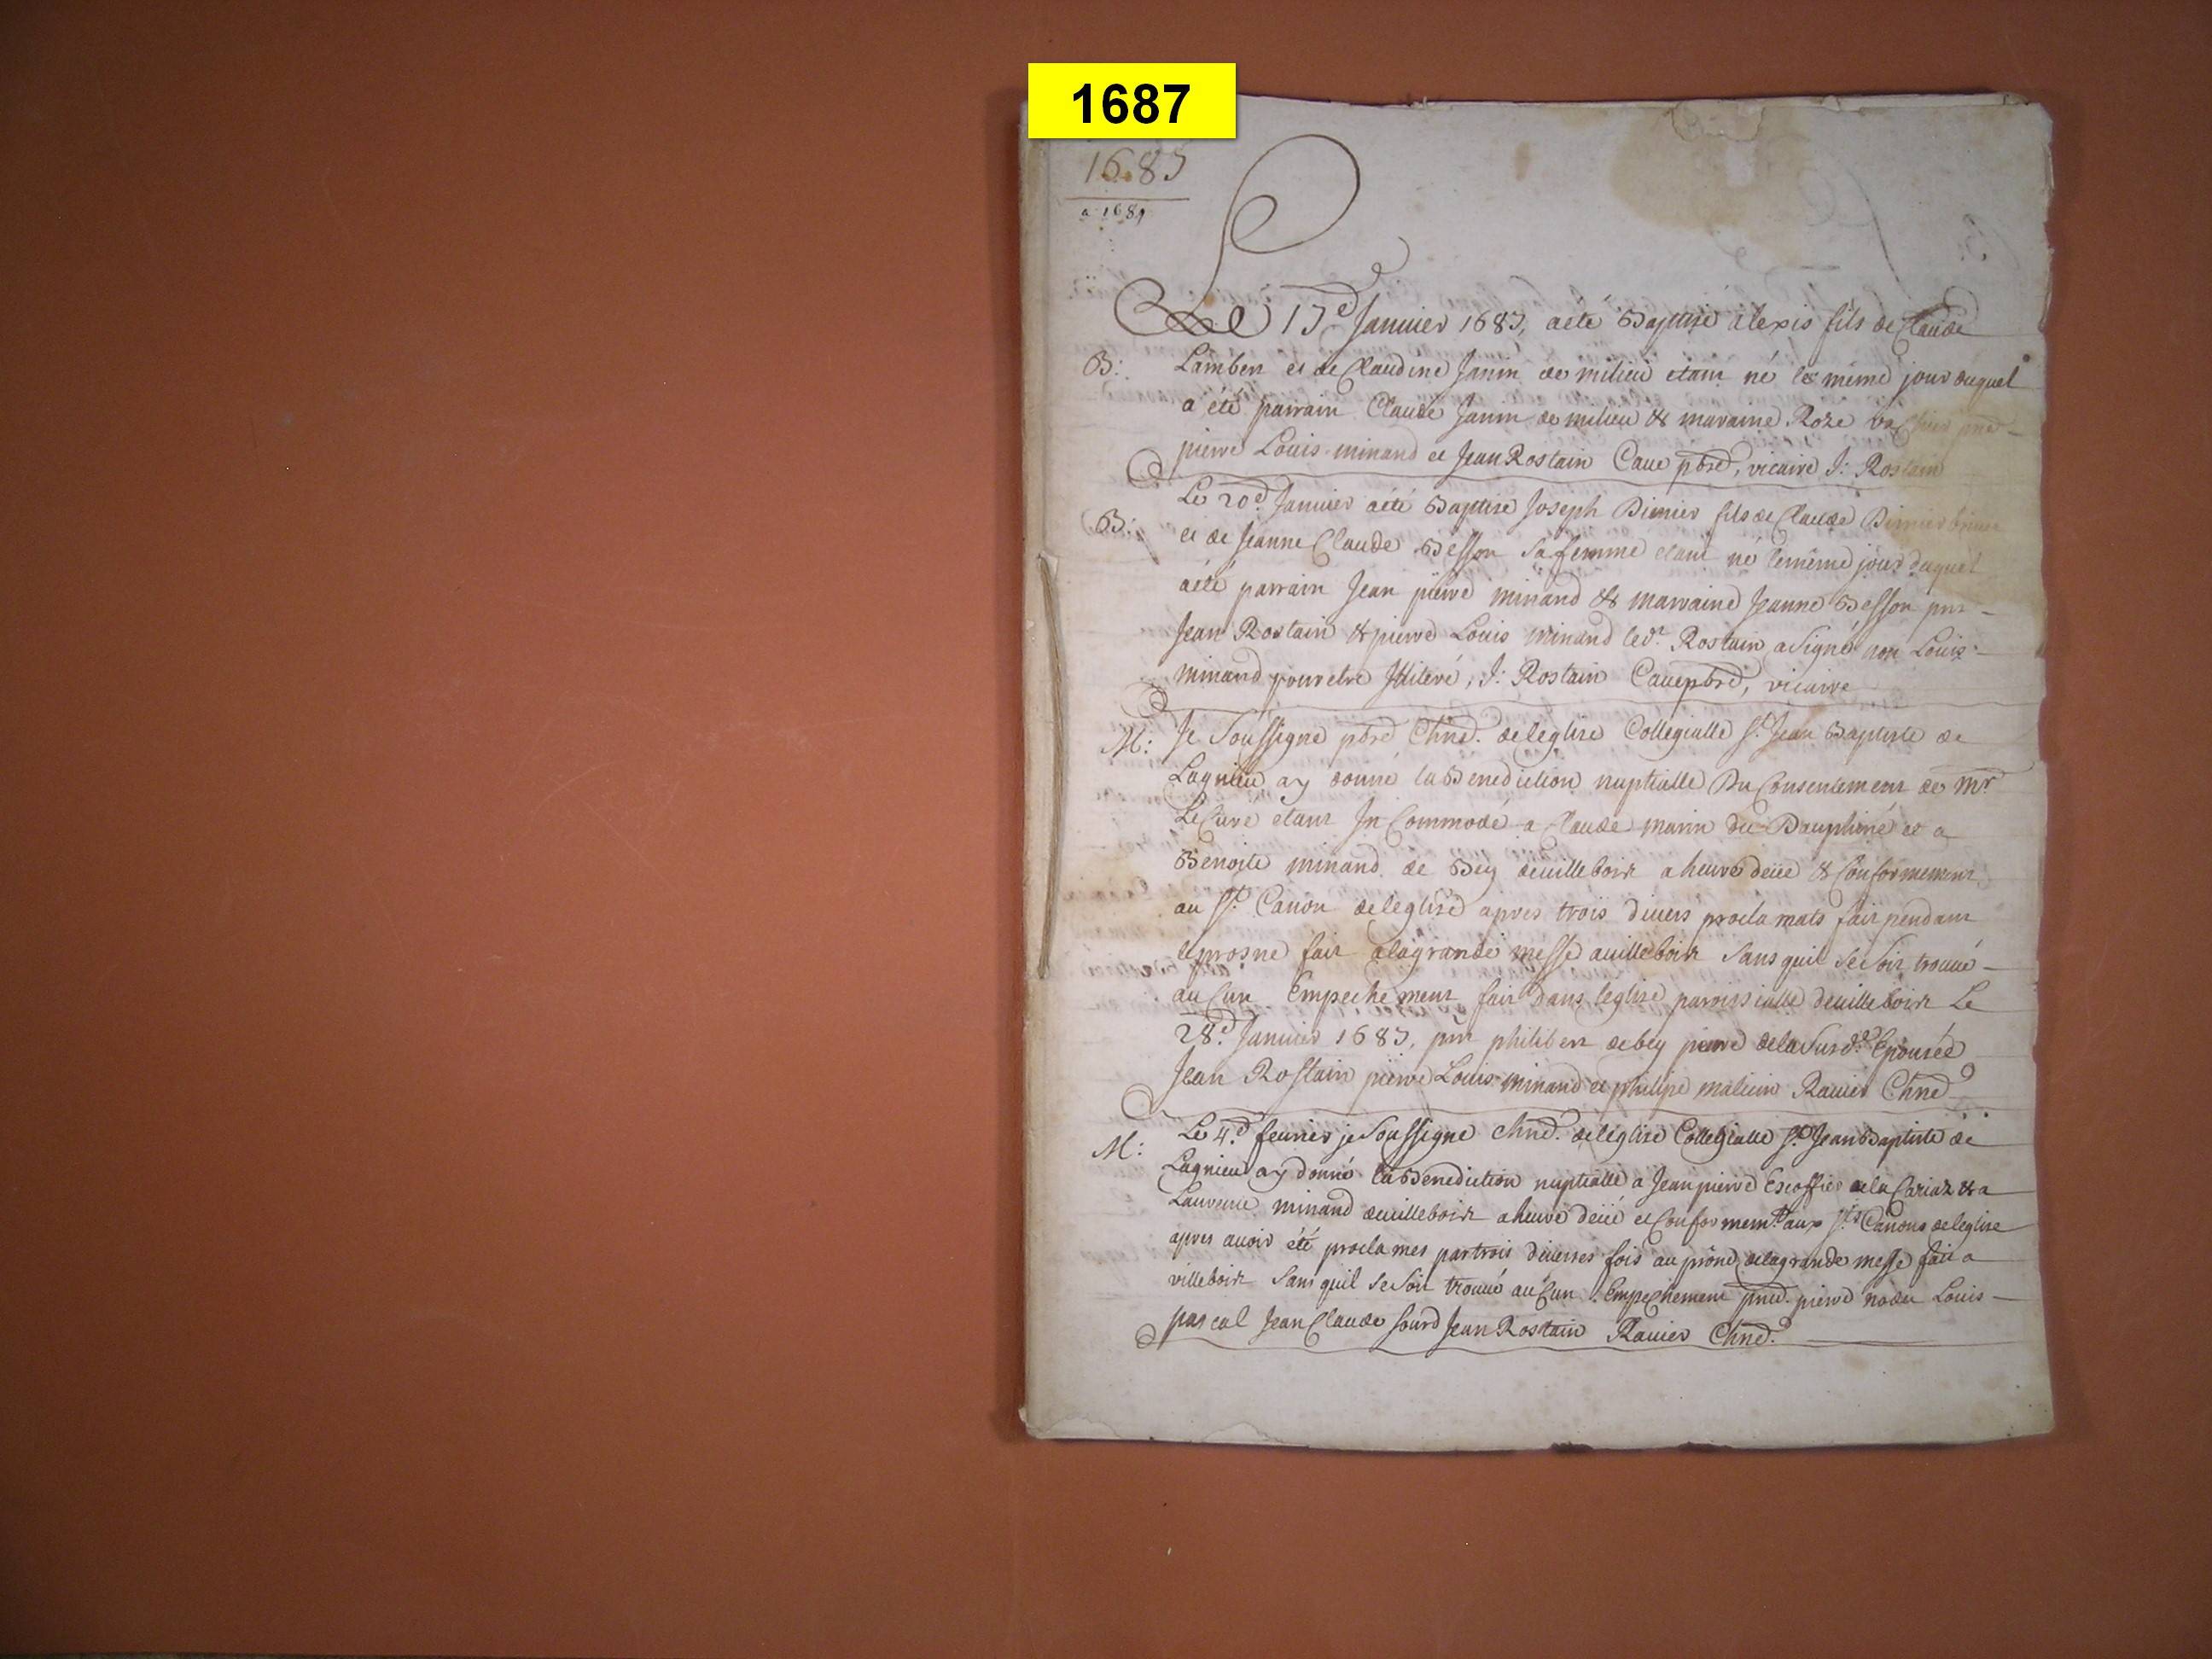 1687
1687
a 1689
Le 17.e Janvier 1687, a eté Baptisé alexis fils de Claude
B: Lambert et de Claudine Janin de milieu etant né le même jour duquel
a été parrain Claude Janin de milieu & maraine Roze
pierre Louis minand et Jean Rostain Cave pbre, vicaire J: Rostain
Le 20.e Janvier a été Baptisé Joseph Dimier fils de Claude Dimier
B: et de Jeanne Claude Besson sa femme etant né le même jour duquel
a été parrain Jean pierre minand & marraine Jeanne Besson pnt
Jean Rostain & pierre Louis minand led.t Rostain a signé non Louis
minand pour etre Illiteré, J: Rostain Cave pbre, vicaire
M: Je Soussigné pbre Chne. de leglise Collegialle S.t Jean Baptiste de
Lagnieu ay donné la Benediction nuptialle Du Consentement de Mr
Le Curé etant In Commodé a Claude marin du Dauphiné et a
Benoite minand de Bey deuillebois a heure deüe & Conformement
au S.t Canon de leglise apres trois divers proclamats fait pendant
le prosne fait a la grande messe a uillebois sans quil se soit trouué
au Cun Empechement fait dans leglise paroissialle deuillebois Le
28.e Janvier 1687, pnt philibert de bey pierre de la Susd.e Epousée
Jean Rostain pierre Louis minand et philipe Ravier Chne
M: Le 4.e feurier je Soussigné chne. de leglise Collegialle S.t Jean Baptiste de
Lagnieu ay donné la Benediction nuptialle a Jean pierre Escoffier & a
Laurence minand deuillebois a heure deüe et Conformem.t aux S.ts Canons de leglise
apres auoir été proclames par trois diuerses fois au prône de la grande messe fait a
villebois sans quil se soit trouué au Cun Empechement pnt. pierre Louis
pascal Jean Claude Sourd Jean Rostain Ravier Chne.